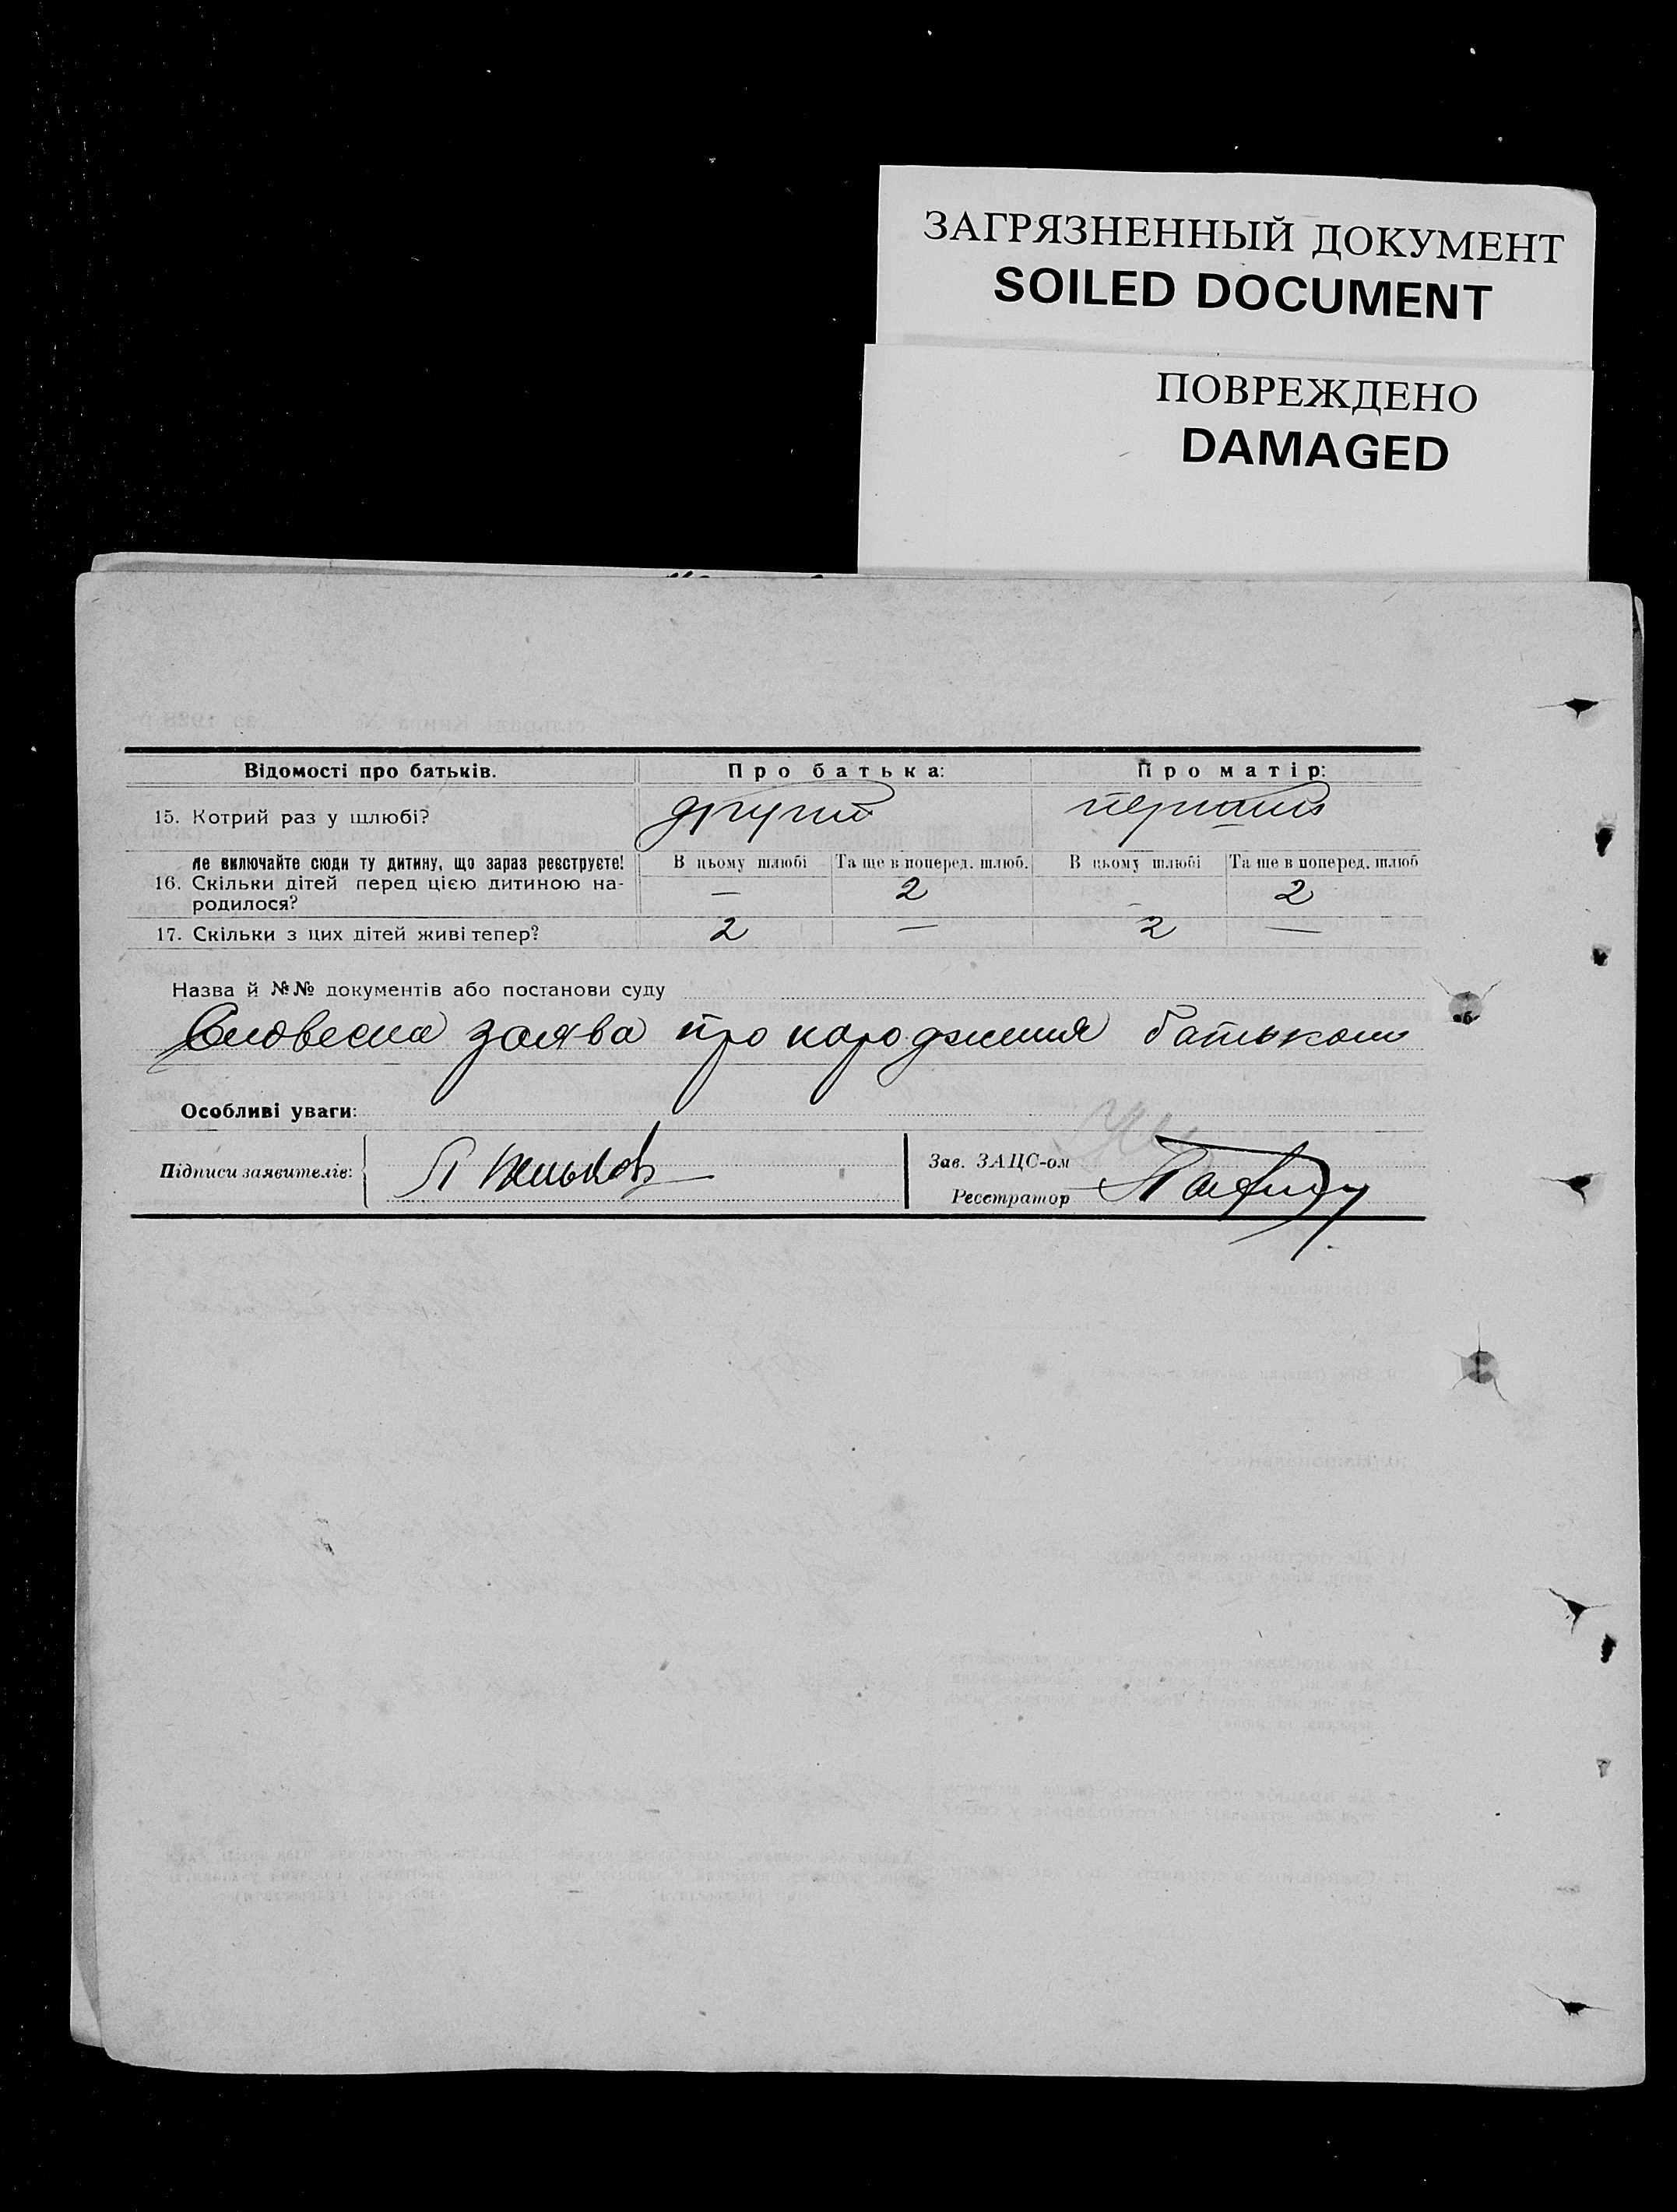 ЗАГРЯЗНЕННЫЙ ДОКУМЕНТ
SOILED DOCUMENT
ПОВРЕЖДЕНО
DAMAGED
Відомості про батьків. Про батька: Про матір:
15. Котрий раз у шлюбі? другий перший
Не включайте сюди ту дитину, що зараз реєструєте! В цьому шлюбі Та ще в поперед. шлюб. В цьому шлюбі Та ще в поперед. шлюб
16. Скільки дітей перед цією дитиною на- — 2 2
родилося?
17. Скільки з цих дітей живі тепер? 2 — 2 —
Назва й №№ документів або постанови суду
Словесна заява про народження батьком
Особливі уваги:
Підписи заявителів:
Зав. ЗАЦС-ом
Реєстратор